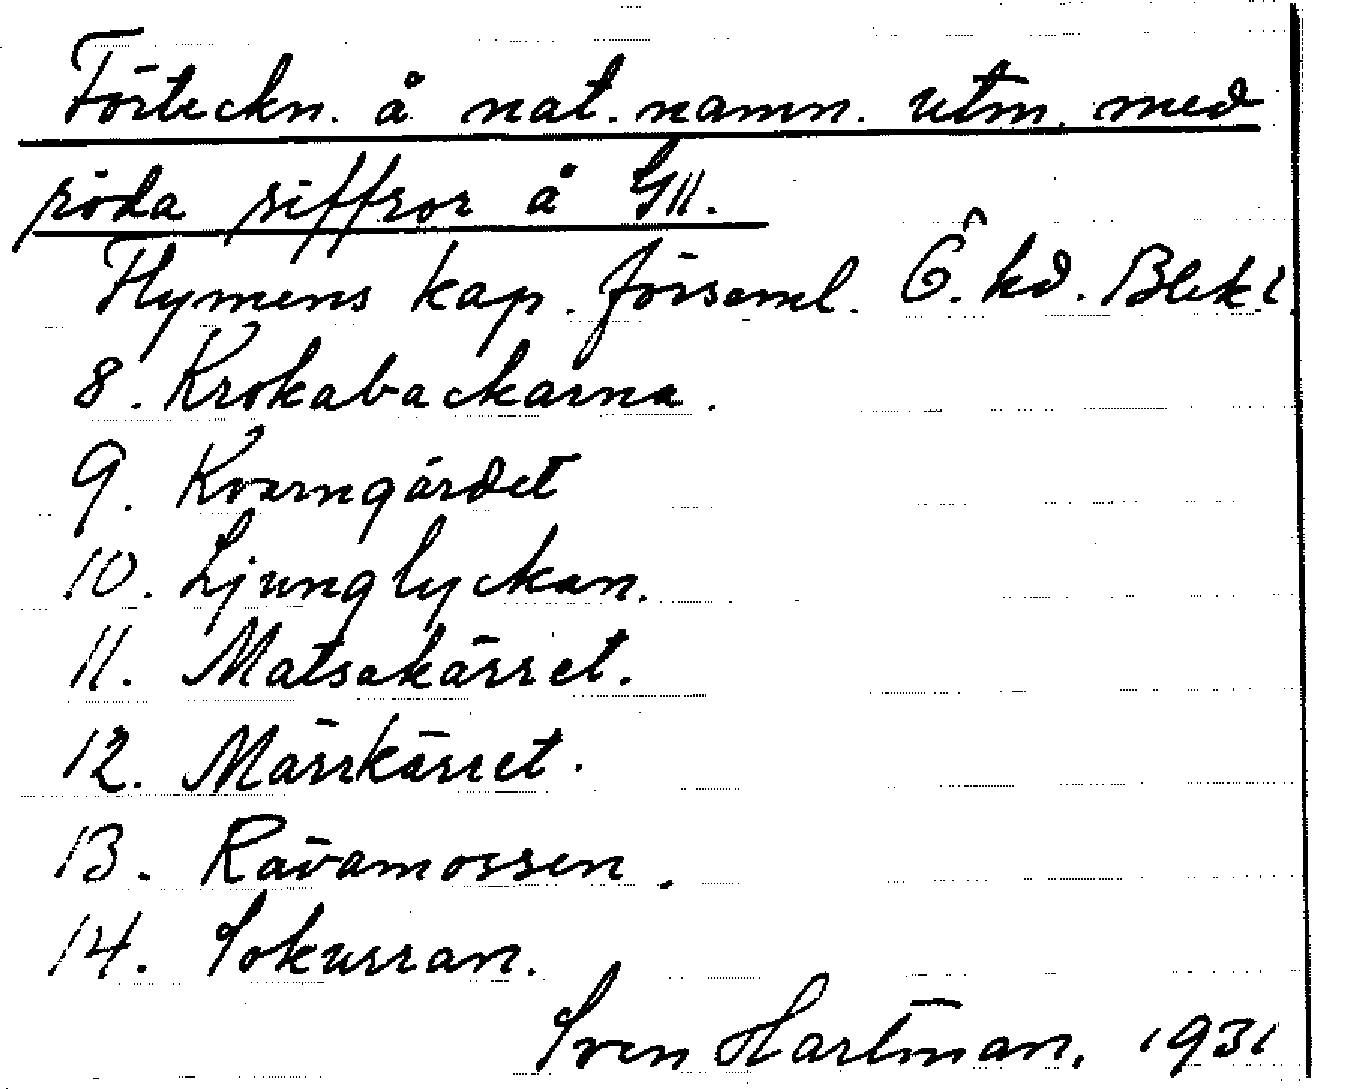 Förteckn. å nat. namn. utm. med
röda siffror å GII.
Flymens kap. församl. Ö. hd. Blek.
8. Krokabackarna.
9. Kvarngärdet
10. Ljunglyckan.
11. Matsakärret.
12. Märrkärret.
13. Rävamossen.
14. Sokurran.
Sven Hartman. 1931